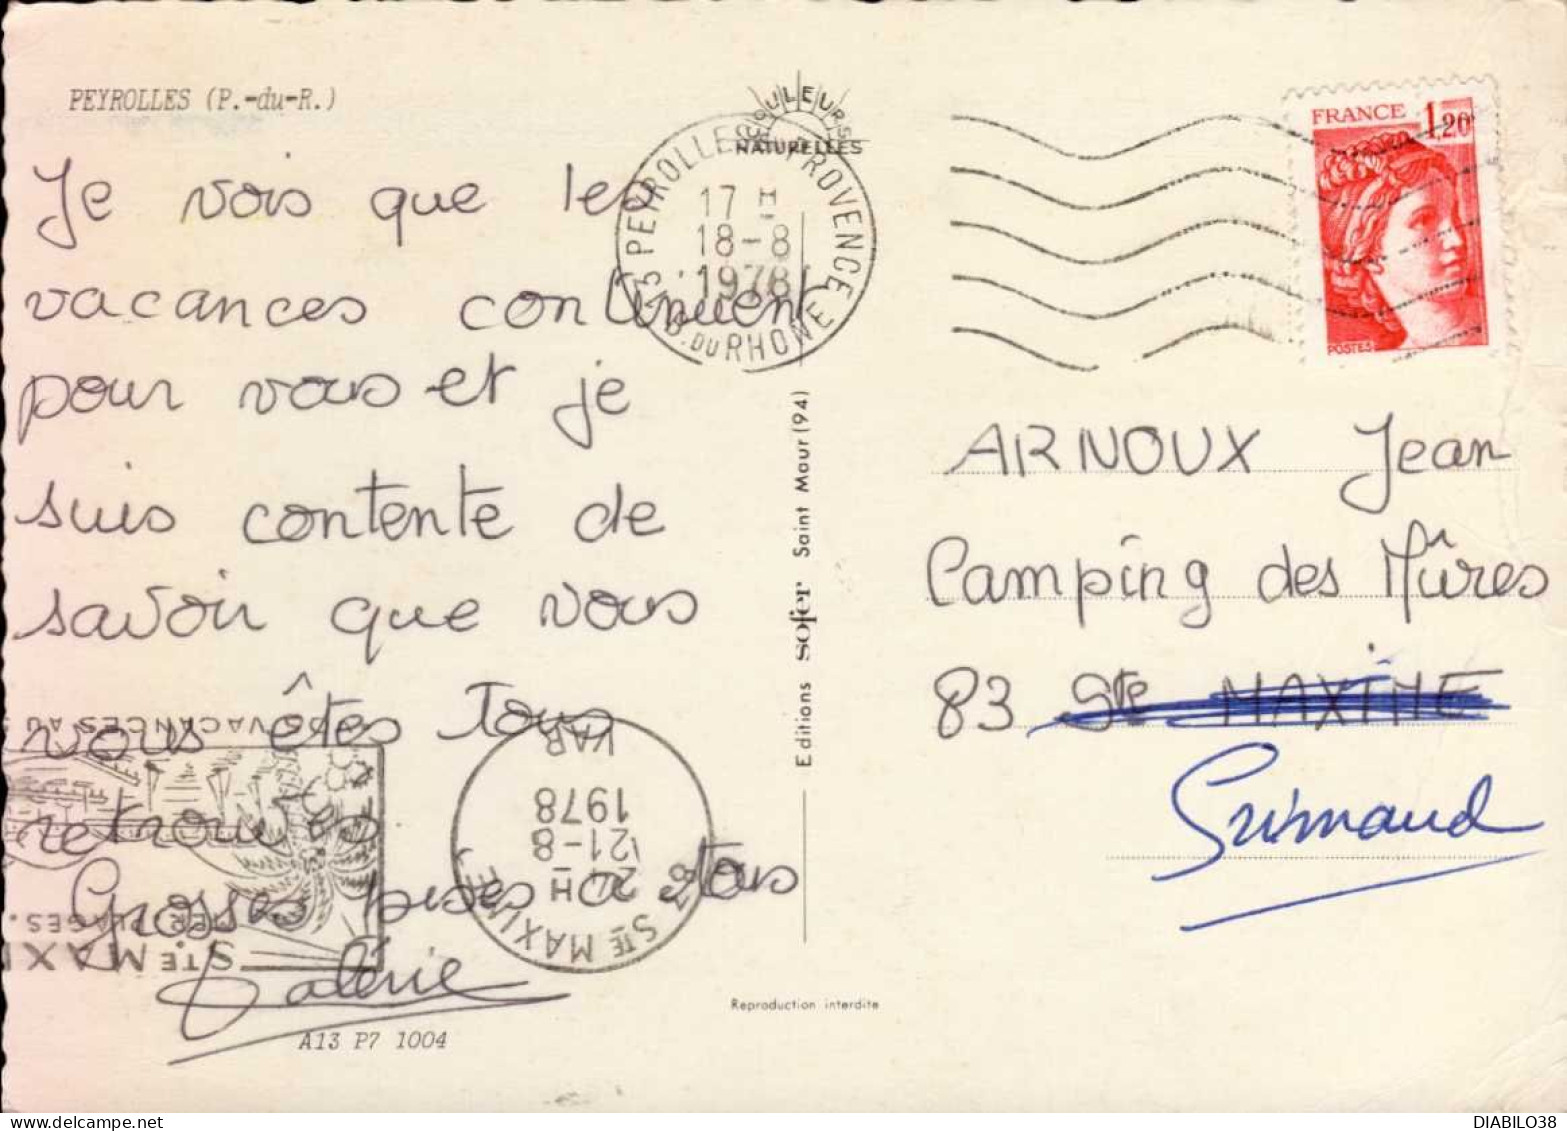 PEYROLLES (P.-du-R.)
Je vois que les
vacances continuent
pour vous et je
suis contente de
savoir que vous
vous êtes tous
retrouvés
Grosses bises à tous
Valérie
A13 P7 1004
COULEURS
NATURELLES
13 PEYROLLES EN PROVENCE
17 H
18-8
1978
B. DU RHONE
Editions sofer Saint Maur (94)
Reproduction interdite
83 STE MAXIME
24 H
21-8
1978
VAR
VACANCES AU
PLAGES.
STE MAXI
FRANCE 1,20
POSTES
ARNOUX Jean
Camping des Mûres
83 Ste MAXIME
Grimaud
DIABILO38